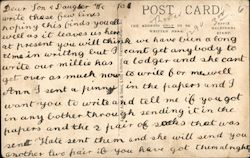 Dear Son & Daughter We
write these few lines
hoping this finds you all
well as it leaves us here
at present you will think we have been a long
time in writing but I cant get anybody to
write our millie has a lodger and she cant
get over as much now to write for me well
Ann I sent a pinny in the papers and I
want you to write and tell me if you got
in any bother through sending it in the
papers and the 2 pair of socks that was
sent Kate sent them and she will send you
another two pair if you have got them alright
POST CARD